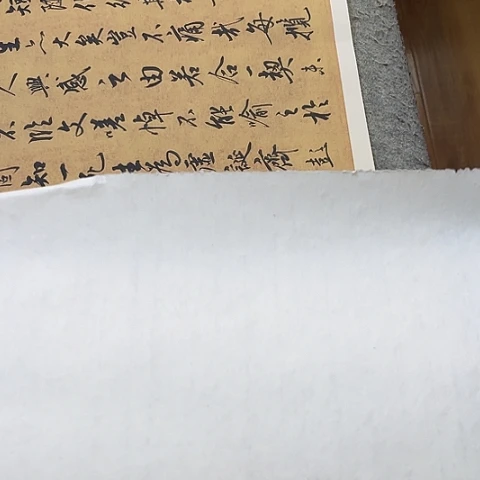 生亦大矣豈不痛哉每攬
人興感之由若合一契未
不臨文嗟悼不能喻之於
固知一死生為虛誕齊彭